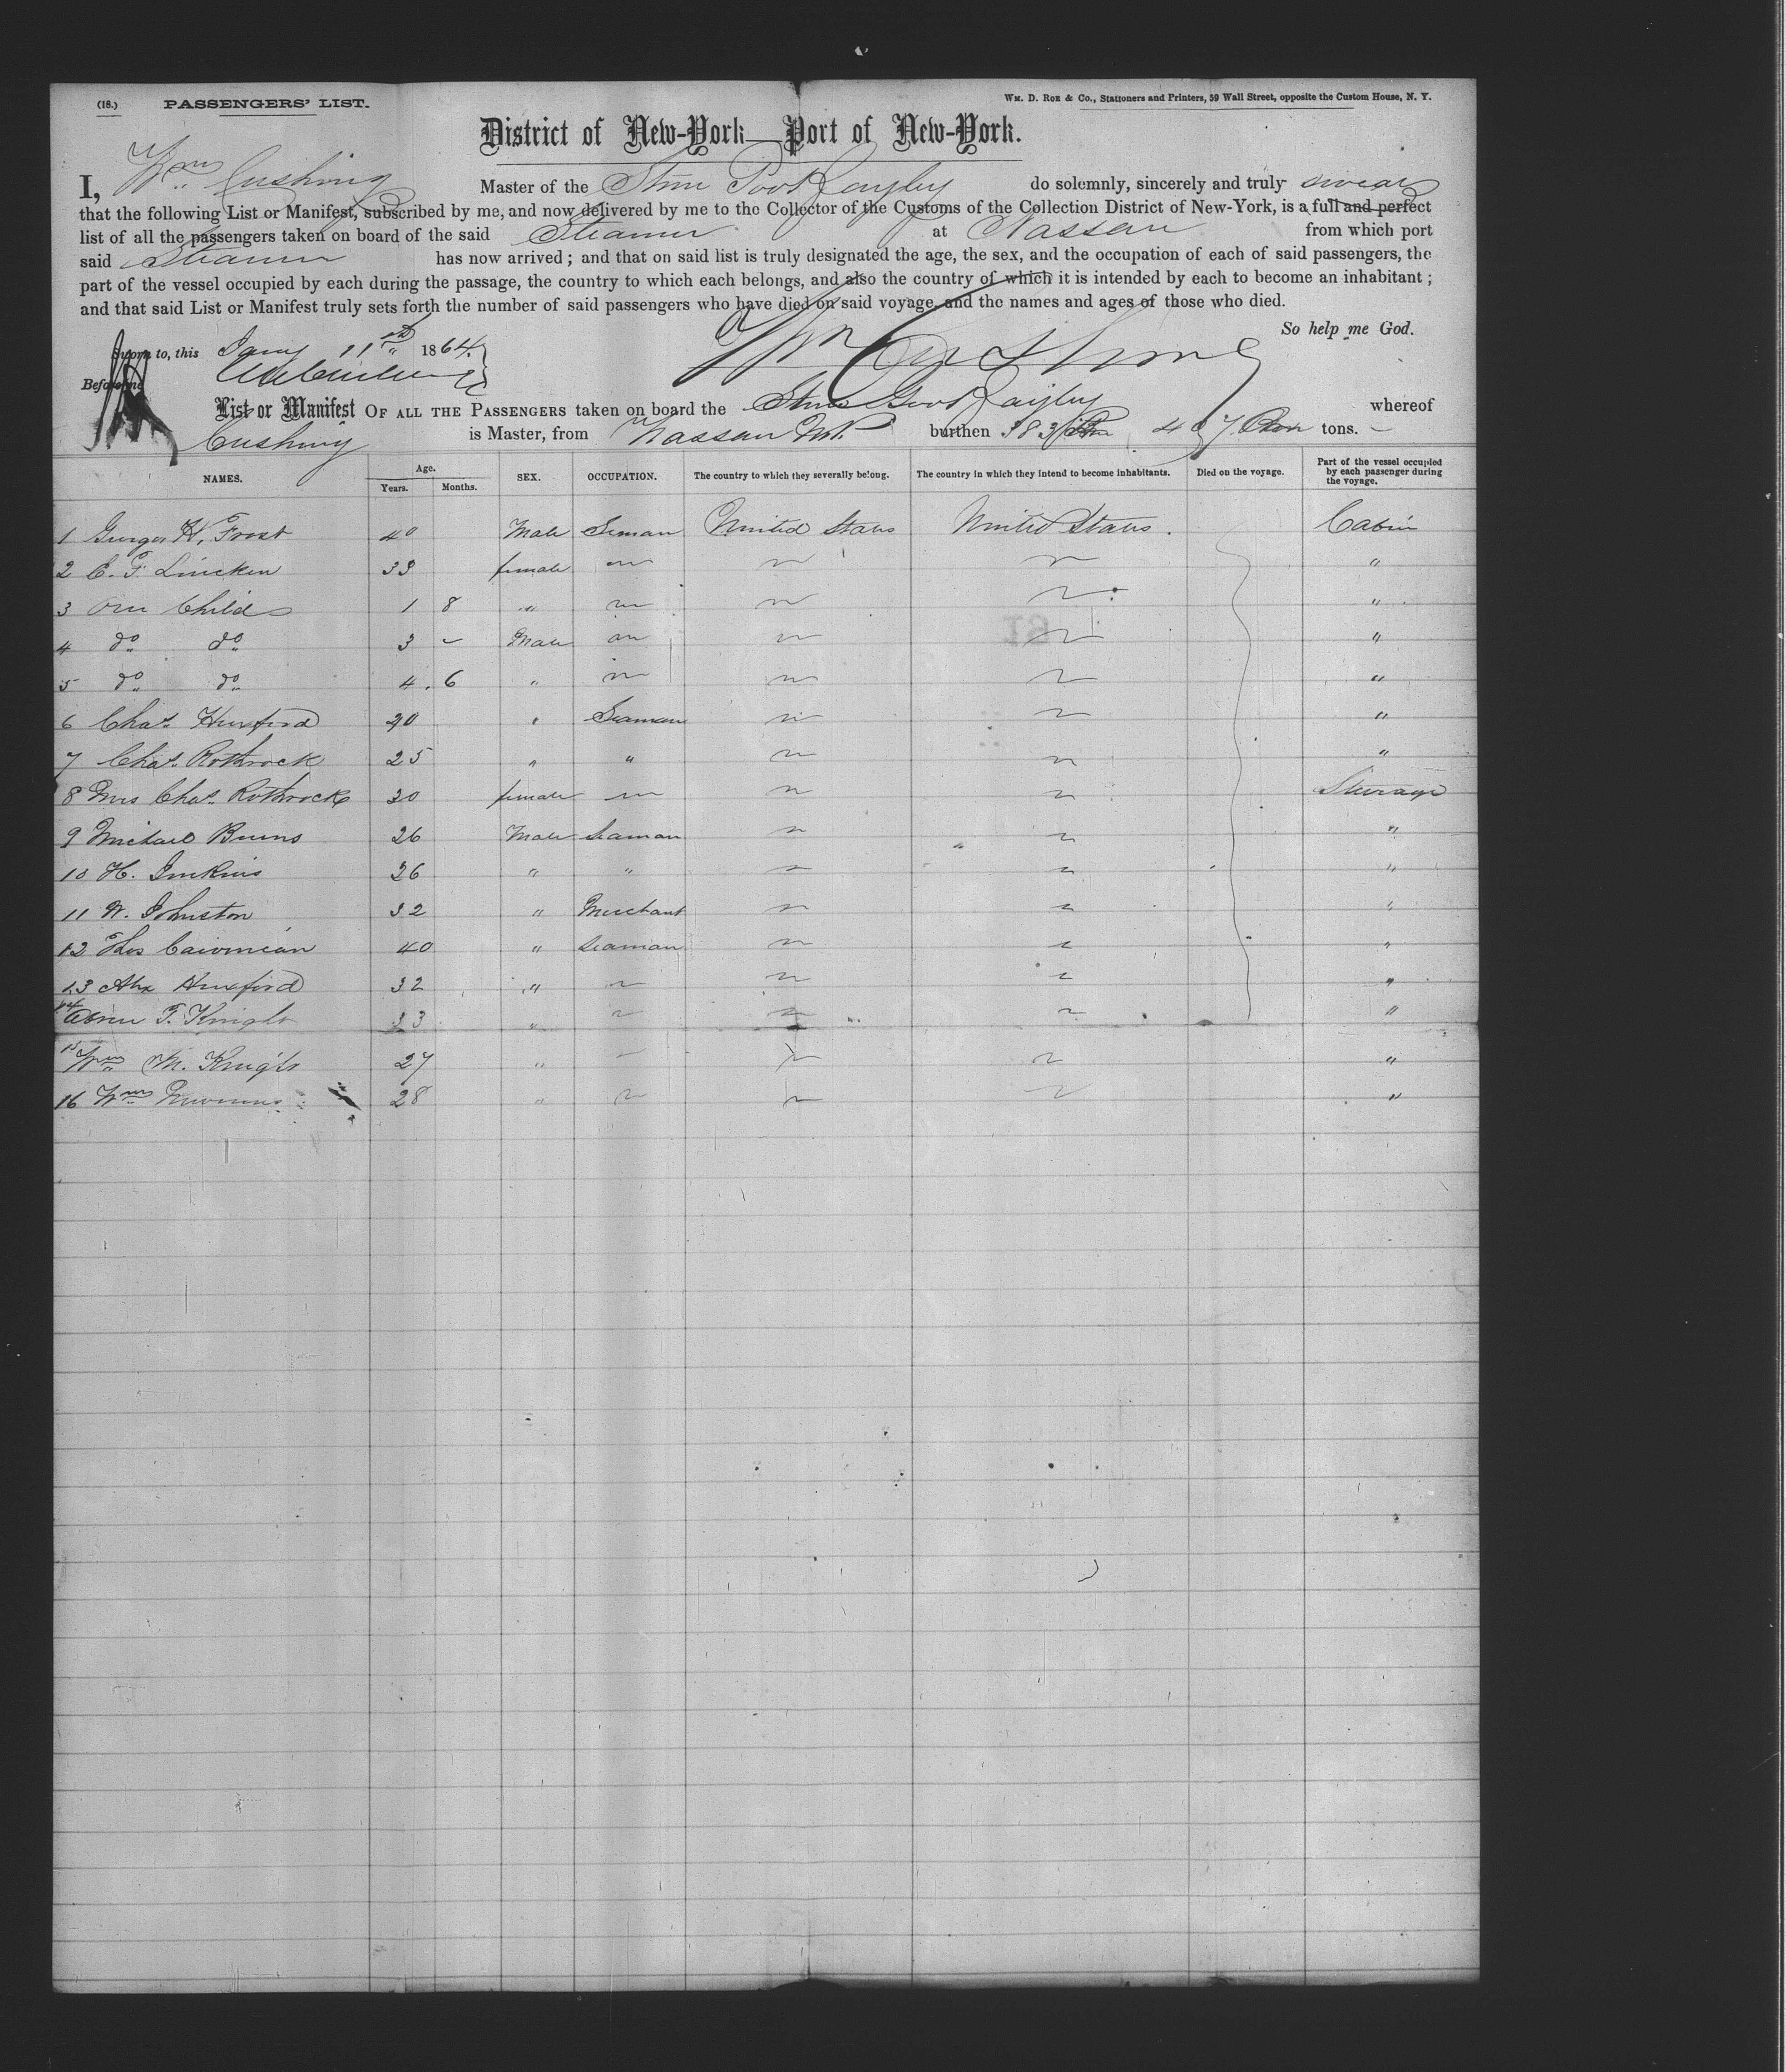 (18.) PASSENGERS' LIST.
WM. D. ROE & CO., Stationers and Printers, 59 Wall Street, opposite the Custom House, N. Y.
District of New-York—Port of New-York.
I, Wm Cushing Master of the Stmr do solemnly, sincerely and truly swear
that the following List or Manifest, subscribed by me, and now delivered by me to the Collector of the Customs of the Collection District of New-York, is a full and perfect
list of all the passengers taken on board of the said Steamer at Nassau from which port
said Steamer has now arrived; and that on said list is truly designated the age, the sex, and the occupation of each of said passengers, the
part of the vessel occupied by each during the passage, the country to which each belongs, and also the country of which it is intended by each to become an inhabitant;
and that said List or Manifest truly sets forth the number of said passengers who have died on said voyage, and the names and ages of those who died.
So help me God.
Sworn to, this Jany 11th 1864. Wm Cushing
Before me
List or Manifest OF ALL THE PASSENGERS taken on board the Stmr whereof
Cushing is Master, from Nassau N.P. burthen 383 tons.
NAMES. Age. Years. Months. SEX. OCCUPATION. The country to which they severally belong. The country in which they intend to become inhabitants. Died on the voyage. Part of the vessel occupied by each passenger during the voyage.
1 George H. Frost 40 Male Seman United States United States. Cabin
2 E. F. Lincken 33 female "
3 One Child 1 8 " "
4 do do 3 - Male "
5 do do 4. 6 " "
6 Chas. Hursford 20 " Seaman "
7 Chas. Rothrock 25 " " "
8 Mrs Chas. Rothrock 30 female Steerage
9 Michael Burns 26 Male Seaman "
10 H. Jenkins 26 " " "
11 W. Johnston 32 " Merchant "
12 Thos 40 " Seaman "
13 Alex Hursford 32 " "
14 T. Knight 33 " "
15 Wm M. Knight 27 " "
16 Wm 28 " "